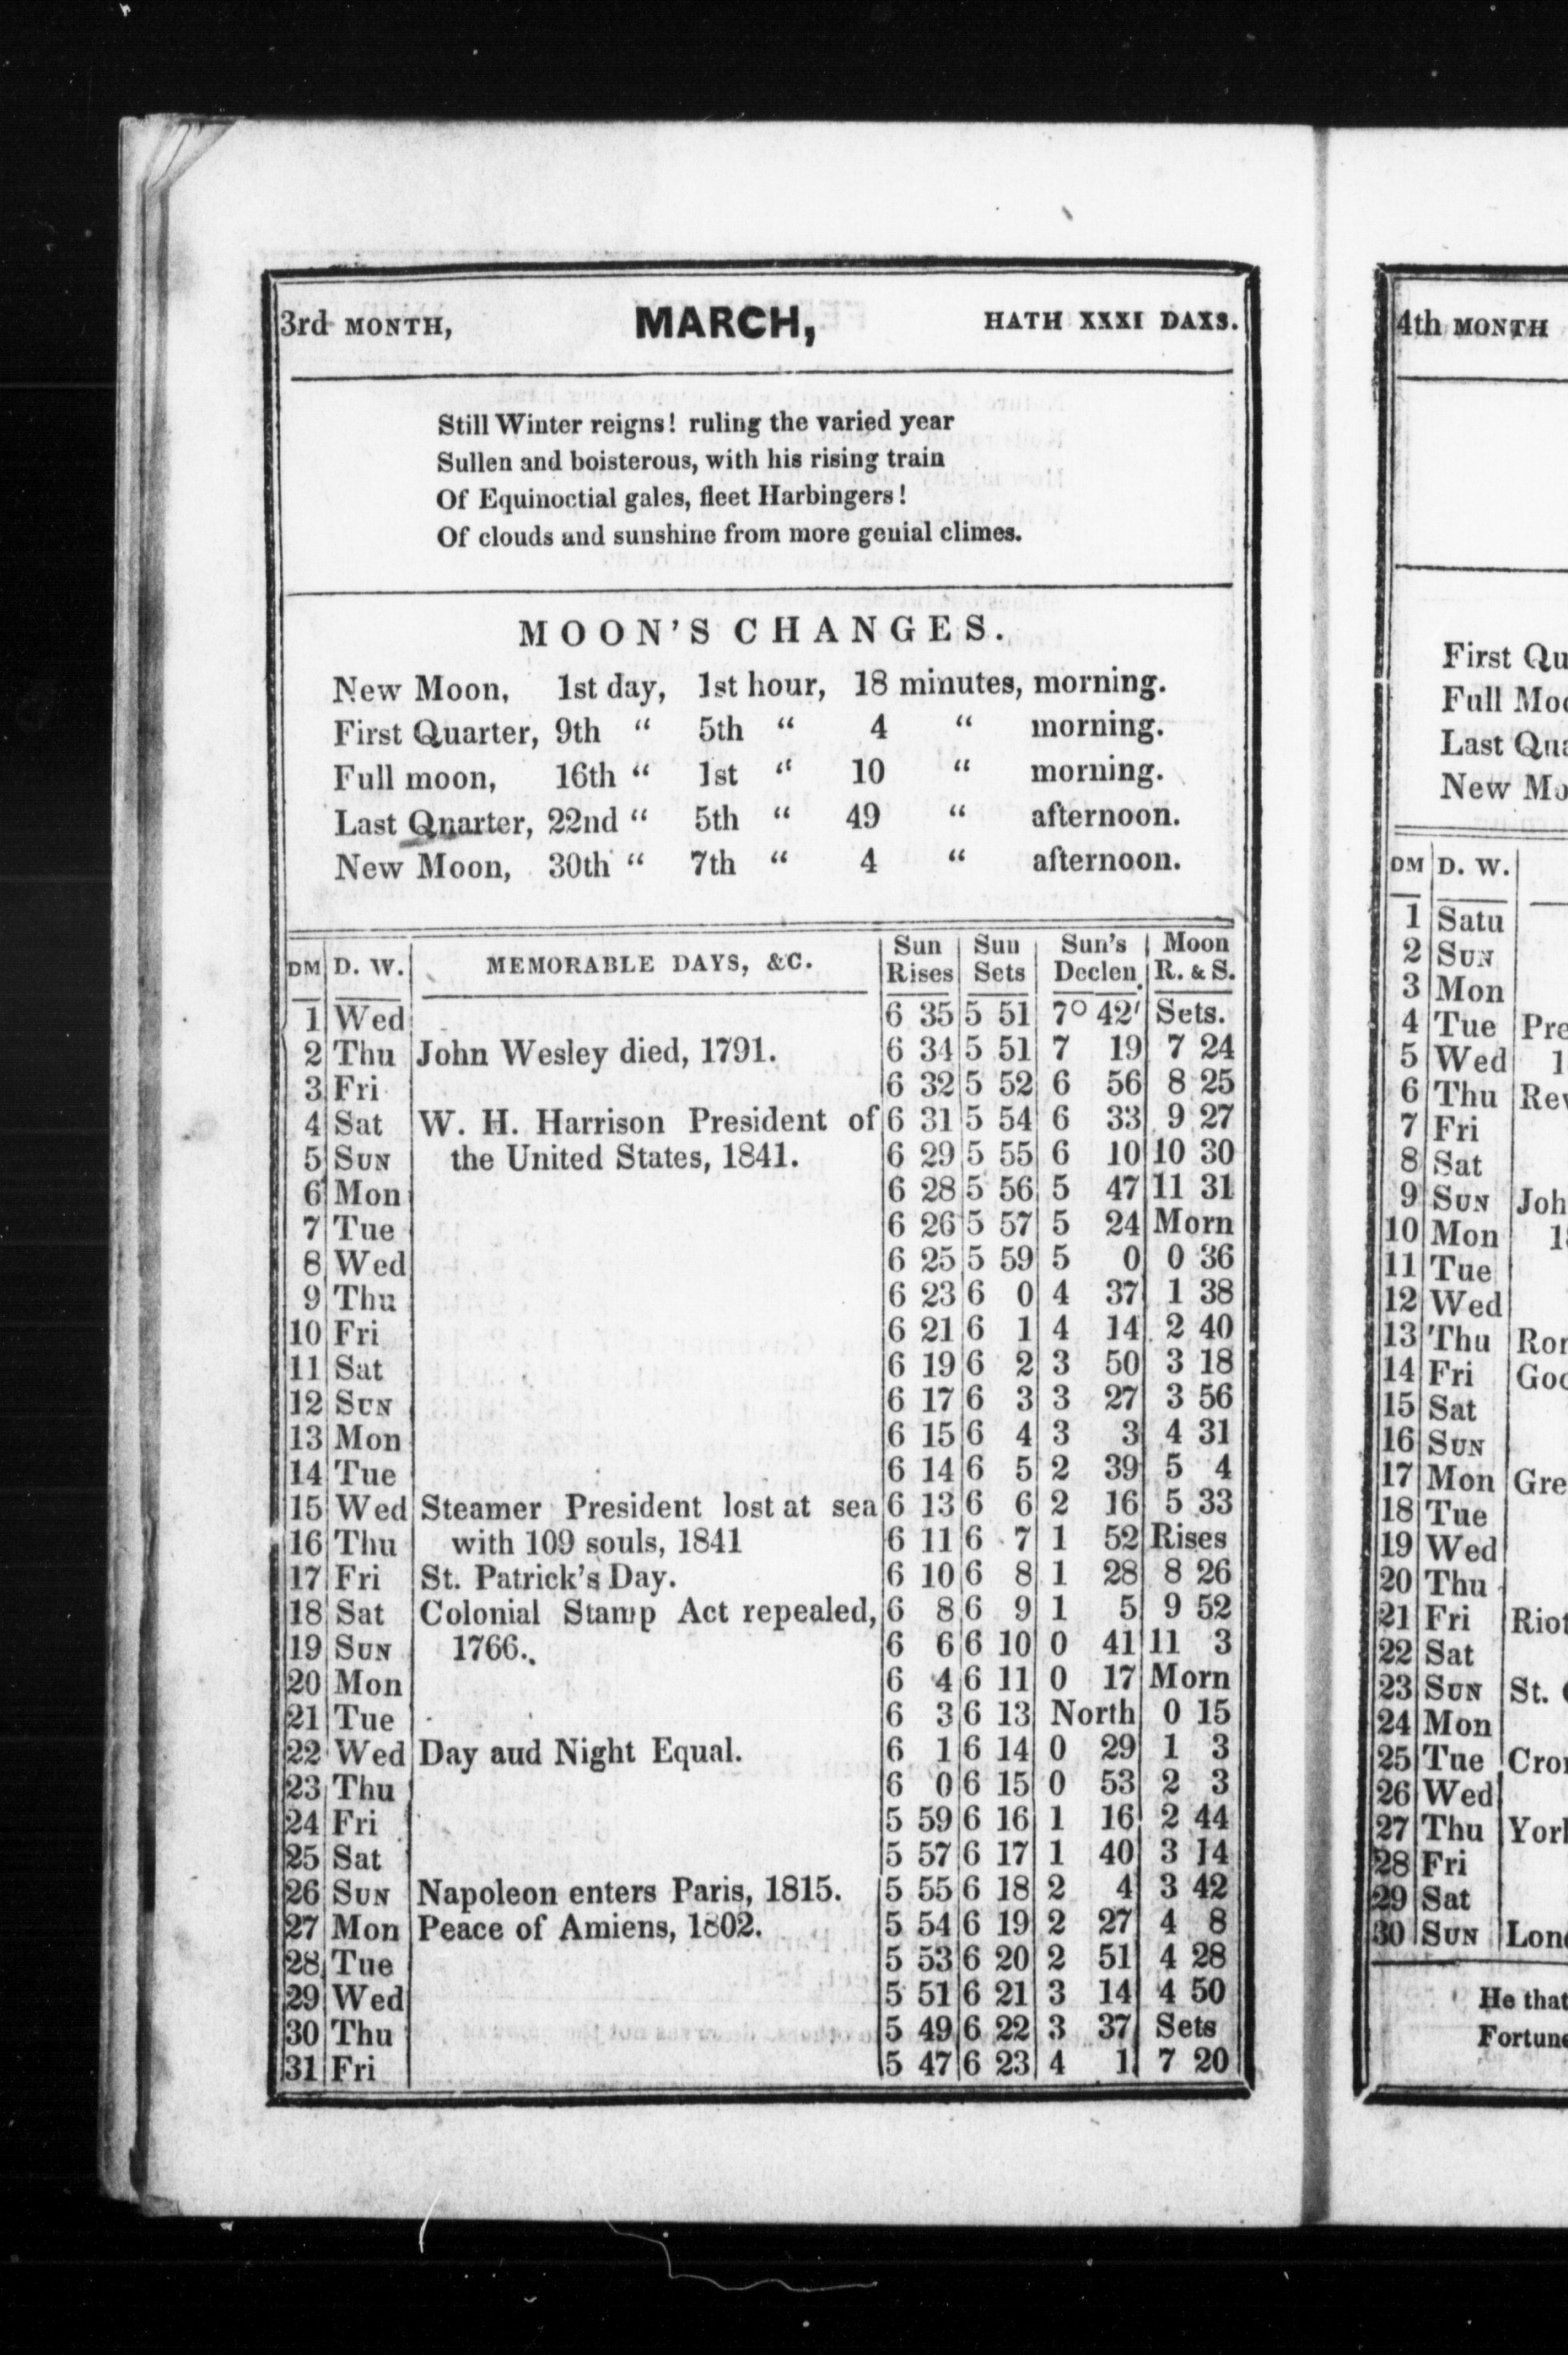 3rd MONTH, MARCH, HATH XXXI DAXS.
Still Winter reigns! ruling the varied year
Sullen and boisterous, with his rising train
Of Equinoctial gales, fleet Harbingers!
Of clouds and sunshine from more genial climes.
MOON'S CHANGES.
New Moon, 1st day, 1st hour, 18 minutes, morning.
First Quarter, 9th “ 5th “ 4 “ morning.
Full moon, 16th “ 1st “ 10 “ morning.
Last Qnarter, 22nd “ 5th “ 49 “ afternoon.
New Moon, 30th “ 7th “ 4 “ afternoon.
DM D. W. MEMORABLE DAYS, &C. Sun Rises Sun Sets Sun's Declen. Moon R. & S.
1 Wed 6 35 5 51 7° 42′ Sets.
2 Thu John Wesley died, 1791. 6 34 5 51 7 19 7 24
3 Fri 6 32 5 52 6 56 8 25
4 Sat W. H. Harrison President of 6 31 5 54 6 33 9 27
5 SUN the United States, 1841. 6 29 5 55 6 10 10 30
6 Mon 6 28 5 56 5 47 11 31
7 Tue 6 26 5 57 5 24 Morn
8 Wed 6 25 5 59 5 0 0 36
9 Thu 6 23 6 0 4 37 1 38
10 Fri 6 21 6 1 4 14 2 40
11 Sat 6 19 6 2 3 50 3 18
12 SUN 6 17 6 3 3 27 3 56
13 Mon 6 15 6 4 3 3 4 31
14 Tue 6 14 6 5 2 39 5 4
15 Wed Steamer President lost at sea 6 13 6 6 2 16 5 33
16 Thu with 109 souls, 1841 6 11 6 7 1 52 Rises
17 Fri St. Patrick's Day. 6 10 6 8 1 28 8 26
18 Sat Colonial Stamp Act repealed, 6 8 6 9 1 5 9 52
19 SUN 1766. 6 6 6 10 0 41 11 3
20 Mon 6 4 6 11 0 17 Morn
21 Tue 6 3 6 13 North 0 15
22 Wed Day and Night Equal. 6 1 6 14 0 29 1 3
23 Thu 6 0 6 15 0 53 2 3
24 Fri 5 59 6 16 1 16 2 44
25 Sat 5 57 6 17 1 40 3 14
26 SUN Napoleon enters Paris, 1815. 5 55 6 18 2 4 3 42
27 Mon Peace of Amiens, 1802. 5 54 6 19 2 27 4 8
28 Tue 5 53 6 20 2 51 4 28
29 Wed 5 51 6 21 3 14 4 50
30 Thu 5 49 6 22 3 37 Sets
31 Fri 5 47 6 23 4 1 7 20
4th MONTH
First Qu
Full Moo
Last Qua
New Mo
DM D. W.
1 Satu
2 SUN
3 Mon
4 Tue Pre
5 Wed 1
6 Thu Rev
7 Fri
8 Sat
9 SUN Joh
10 Mon 18
11 Tue
12 Wed
13 Thu Ror
14 Fri Goo
15 Sat
16 SUN
17 Mon Gre
18 Tue
19 Wed
20 Thu
21 Fri Riot
22 Sat
23 SUN St.
24 Mon
25 Tue Cro
26 Wed
27 Thu York
28 Fri
29 Sat
30 SUN Lond
He that
Fortune